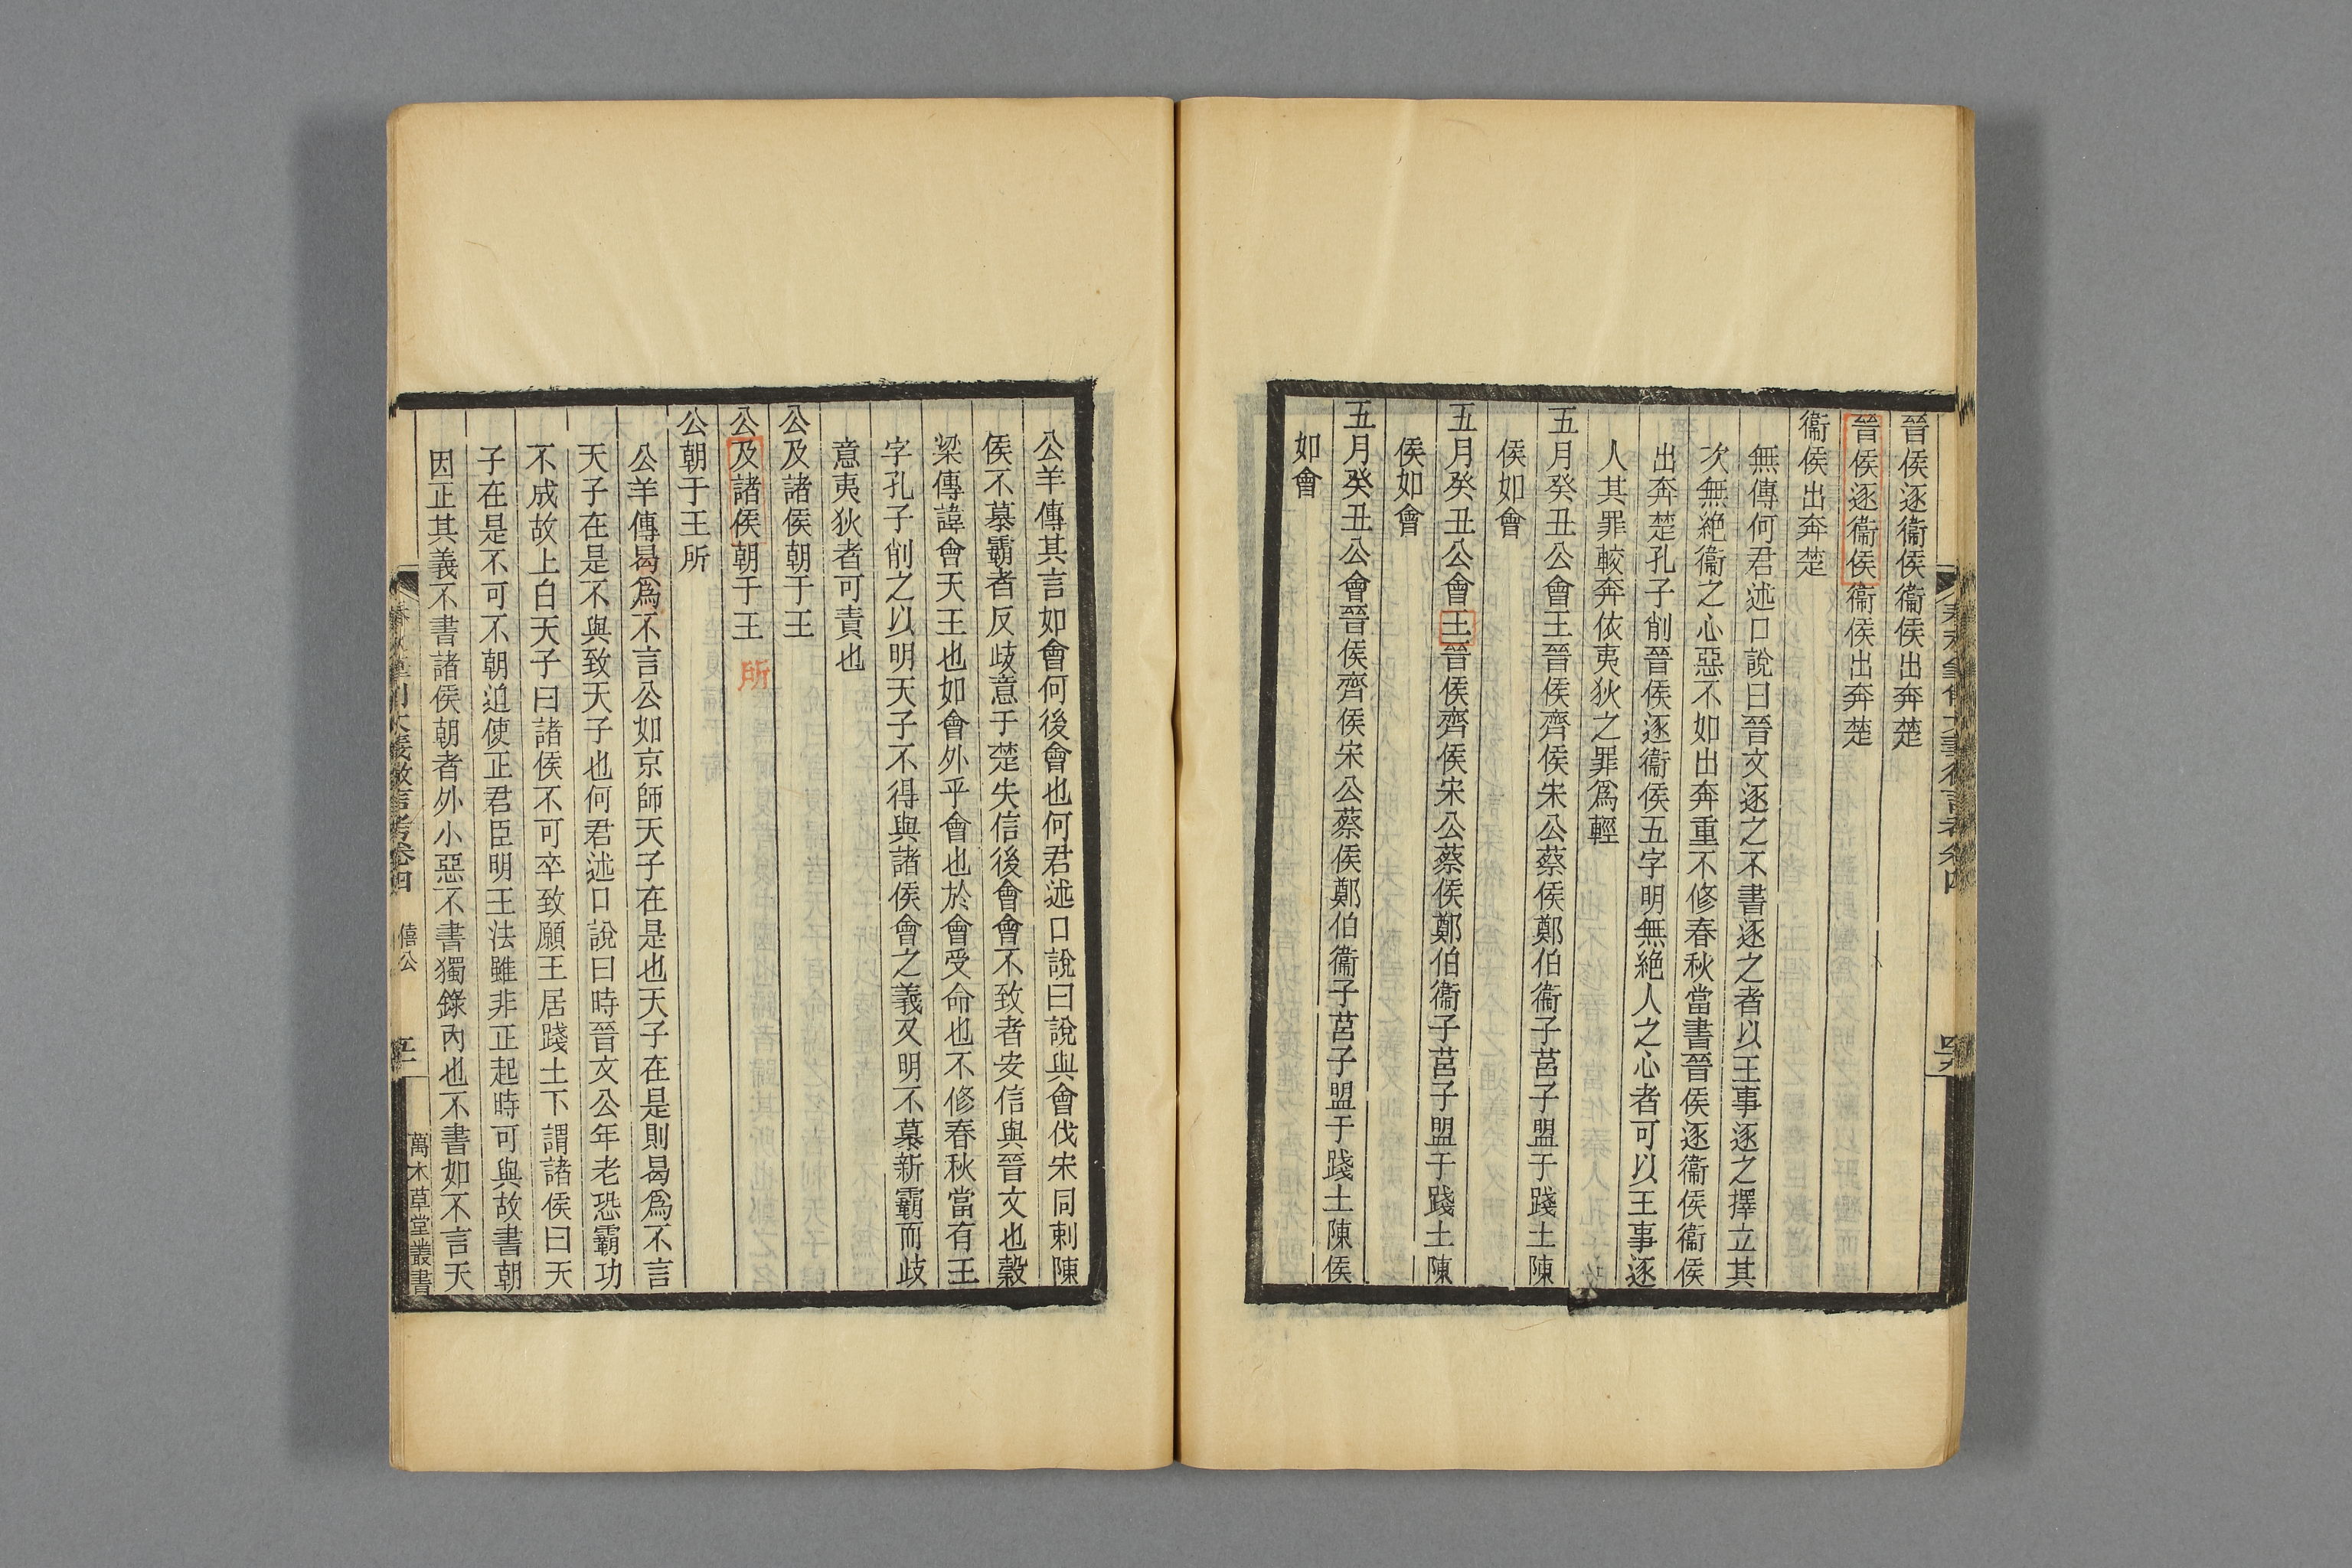 晉侯逐衞侯衞侯出奔楚
晉侯逐衞侯衞侯出奔楚
衞侯出奔楚
無傳何君述口說曰晉文逐之不書逐之者以王事逐之擇立其
次無絕衞之心惡不如出奔重不修春秋當書晉侯逐衞侯衞侯
出奔楚孔子削晉侯逐衞侯五字明無絕人之心者可以王事逐
人其罪較奔依夷狄之罪爲輕
五月癸丑公會王晉侯齊侯宋公蔡侯鄭伯衞子莒子盟于踐土陳
侯如會
五月癸丑公會王晉侯齊侯宋公蔡侯鄭伯衞子莒子盟于踐土陳
侯如會
五月癸丑公會晉侯齊侯宋公蔡侯鄭伯衞子莒子盟于踐土陳侯
如會
公羊傳其言如會何後會也何君述口說曰說與會伐宋同刺陳
侯不慕霸者反歧意于楚失信後會會不致者安信與晉文也穀
梁傳諱會天王也如會外乎會也於會受命也不修春秋當有王
字孔子削之以明天子不得與諸侯會之義又明不慕新霸而歧
意夷狄者可責也
公及諸侯朝于王
公及諸侯朝于王所
公朝于王所
公羊傳曷爲不言公如京師天子在是也天子在是則曷爲不言
天子在是不與致天子也何君述口說曰時晉文公年老恐霸功
不成故上白天子曰諸侯不可卒致願王居踐土下謂諸侯曰天
子在是不可不朝迫使正君臣明王法雖非正起時可與故書朝
因正其義不書諸侯朝者外小惡不書獨錄內也不書如不言天
大義微言考卷四 僖公
萬木草堂叢書